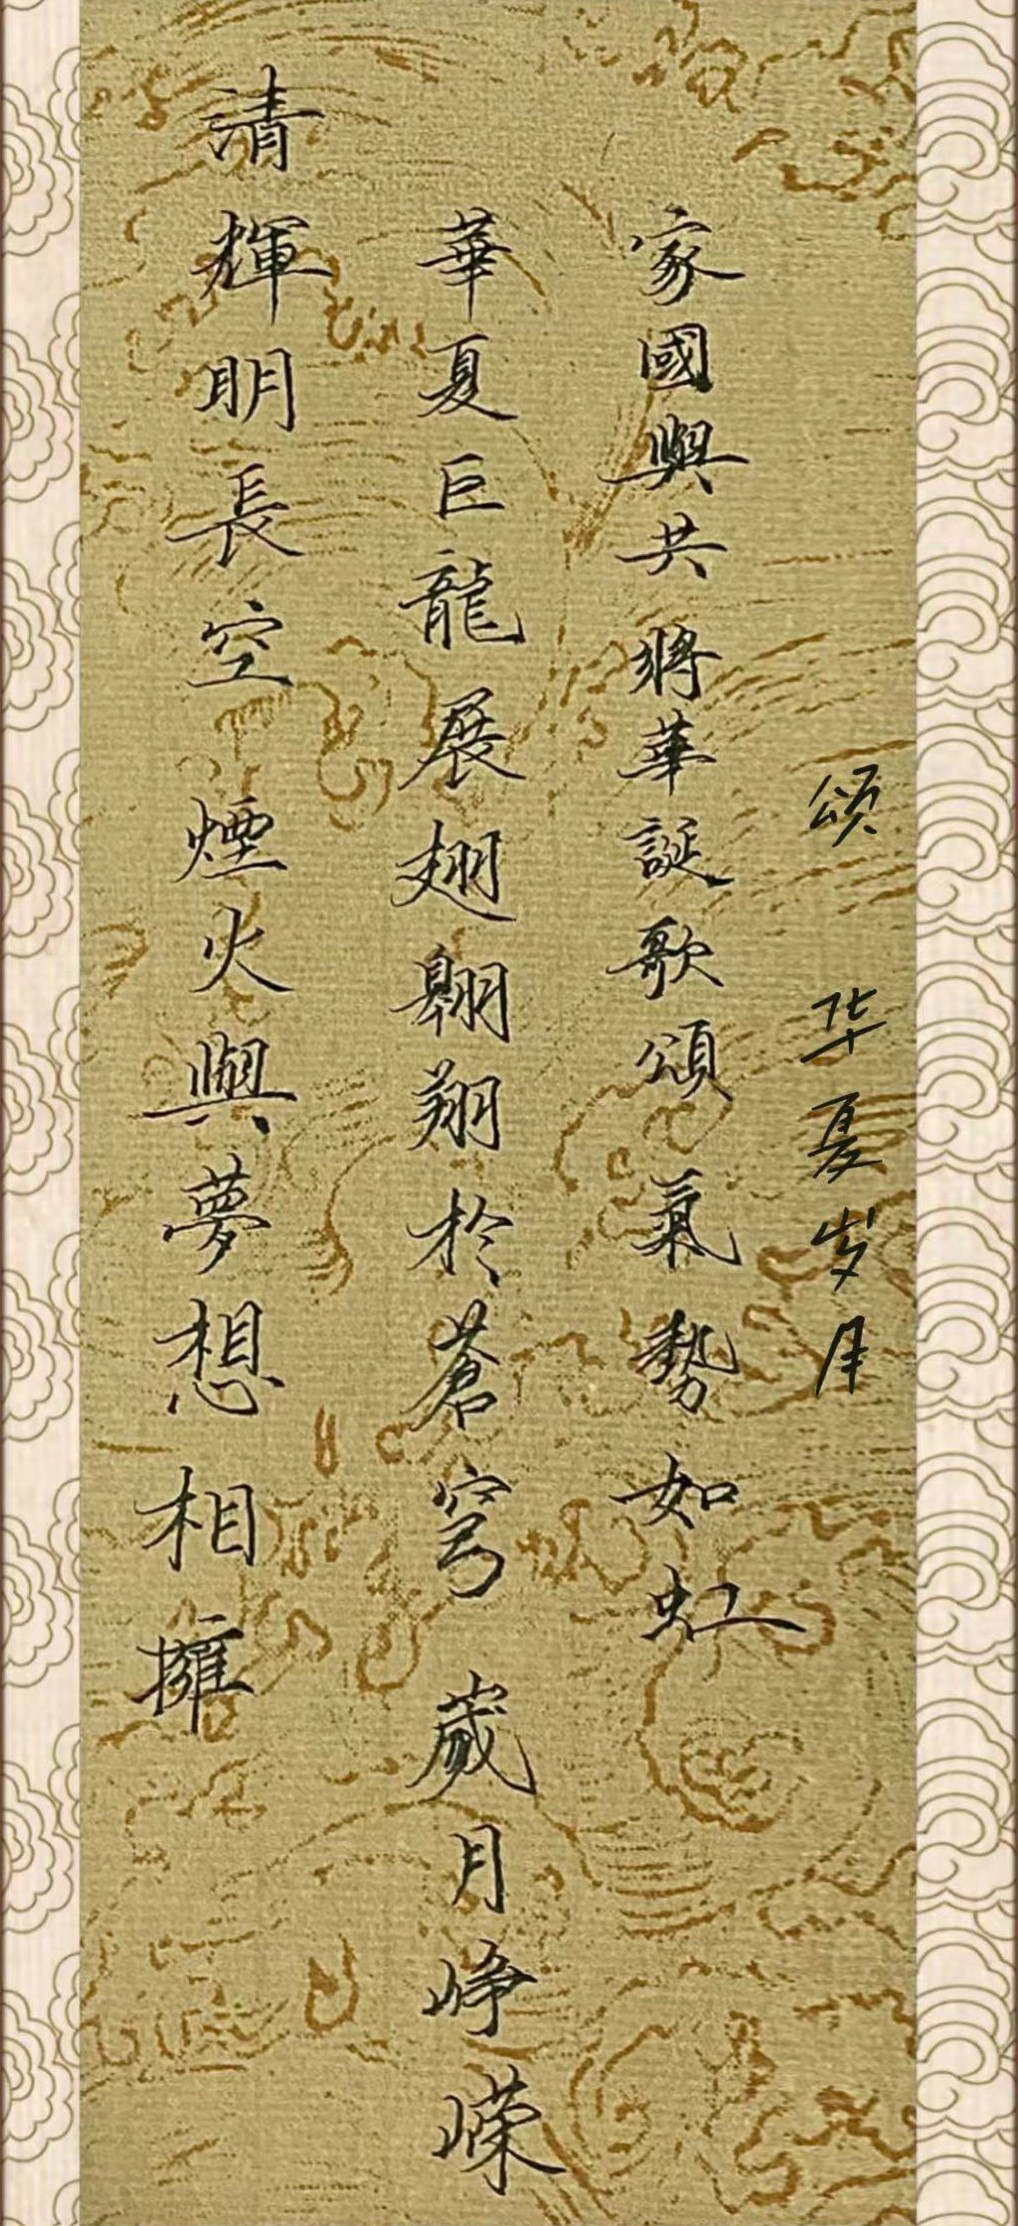 颂 华夏岁月
家國與共 將華誕歌頌 氣勢如虹
華夏巨龍展翅翱翔於蒼穹 歲月崢嶸
清輝明長空 煙火與夢想相擁